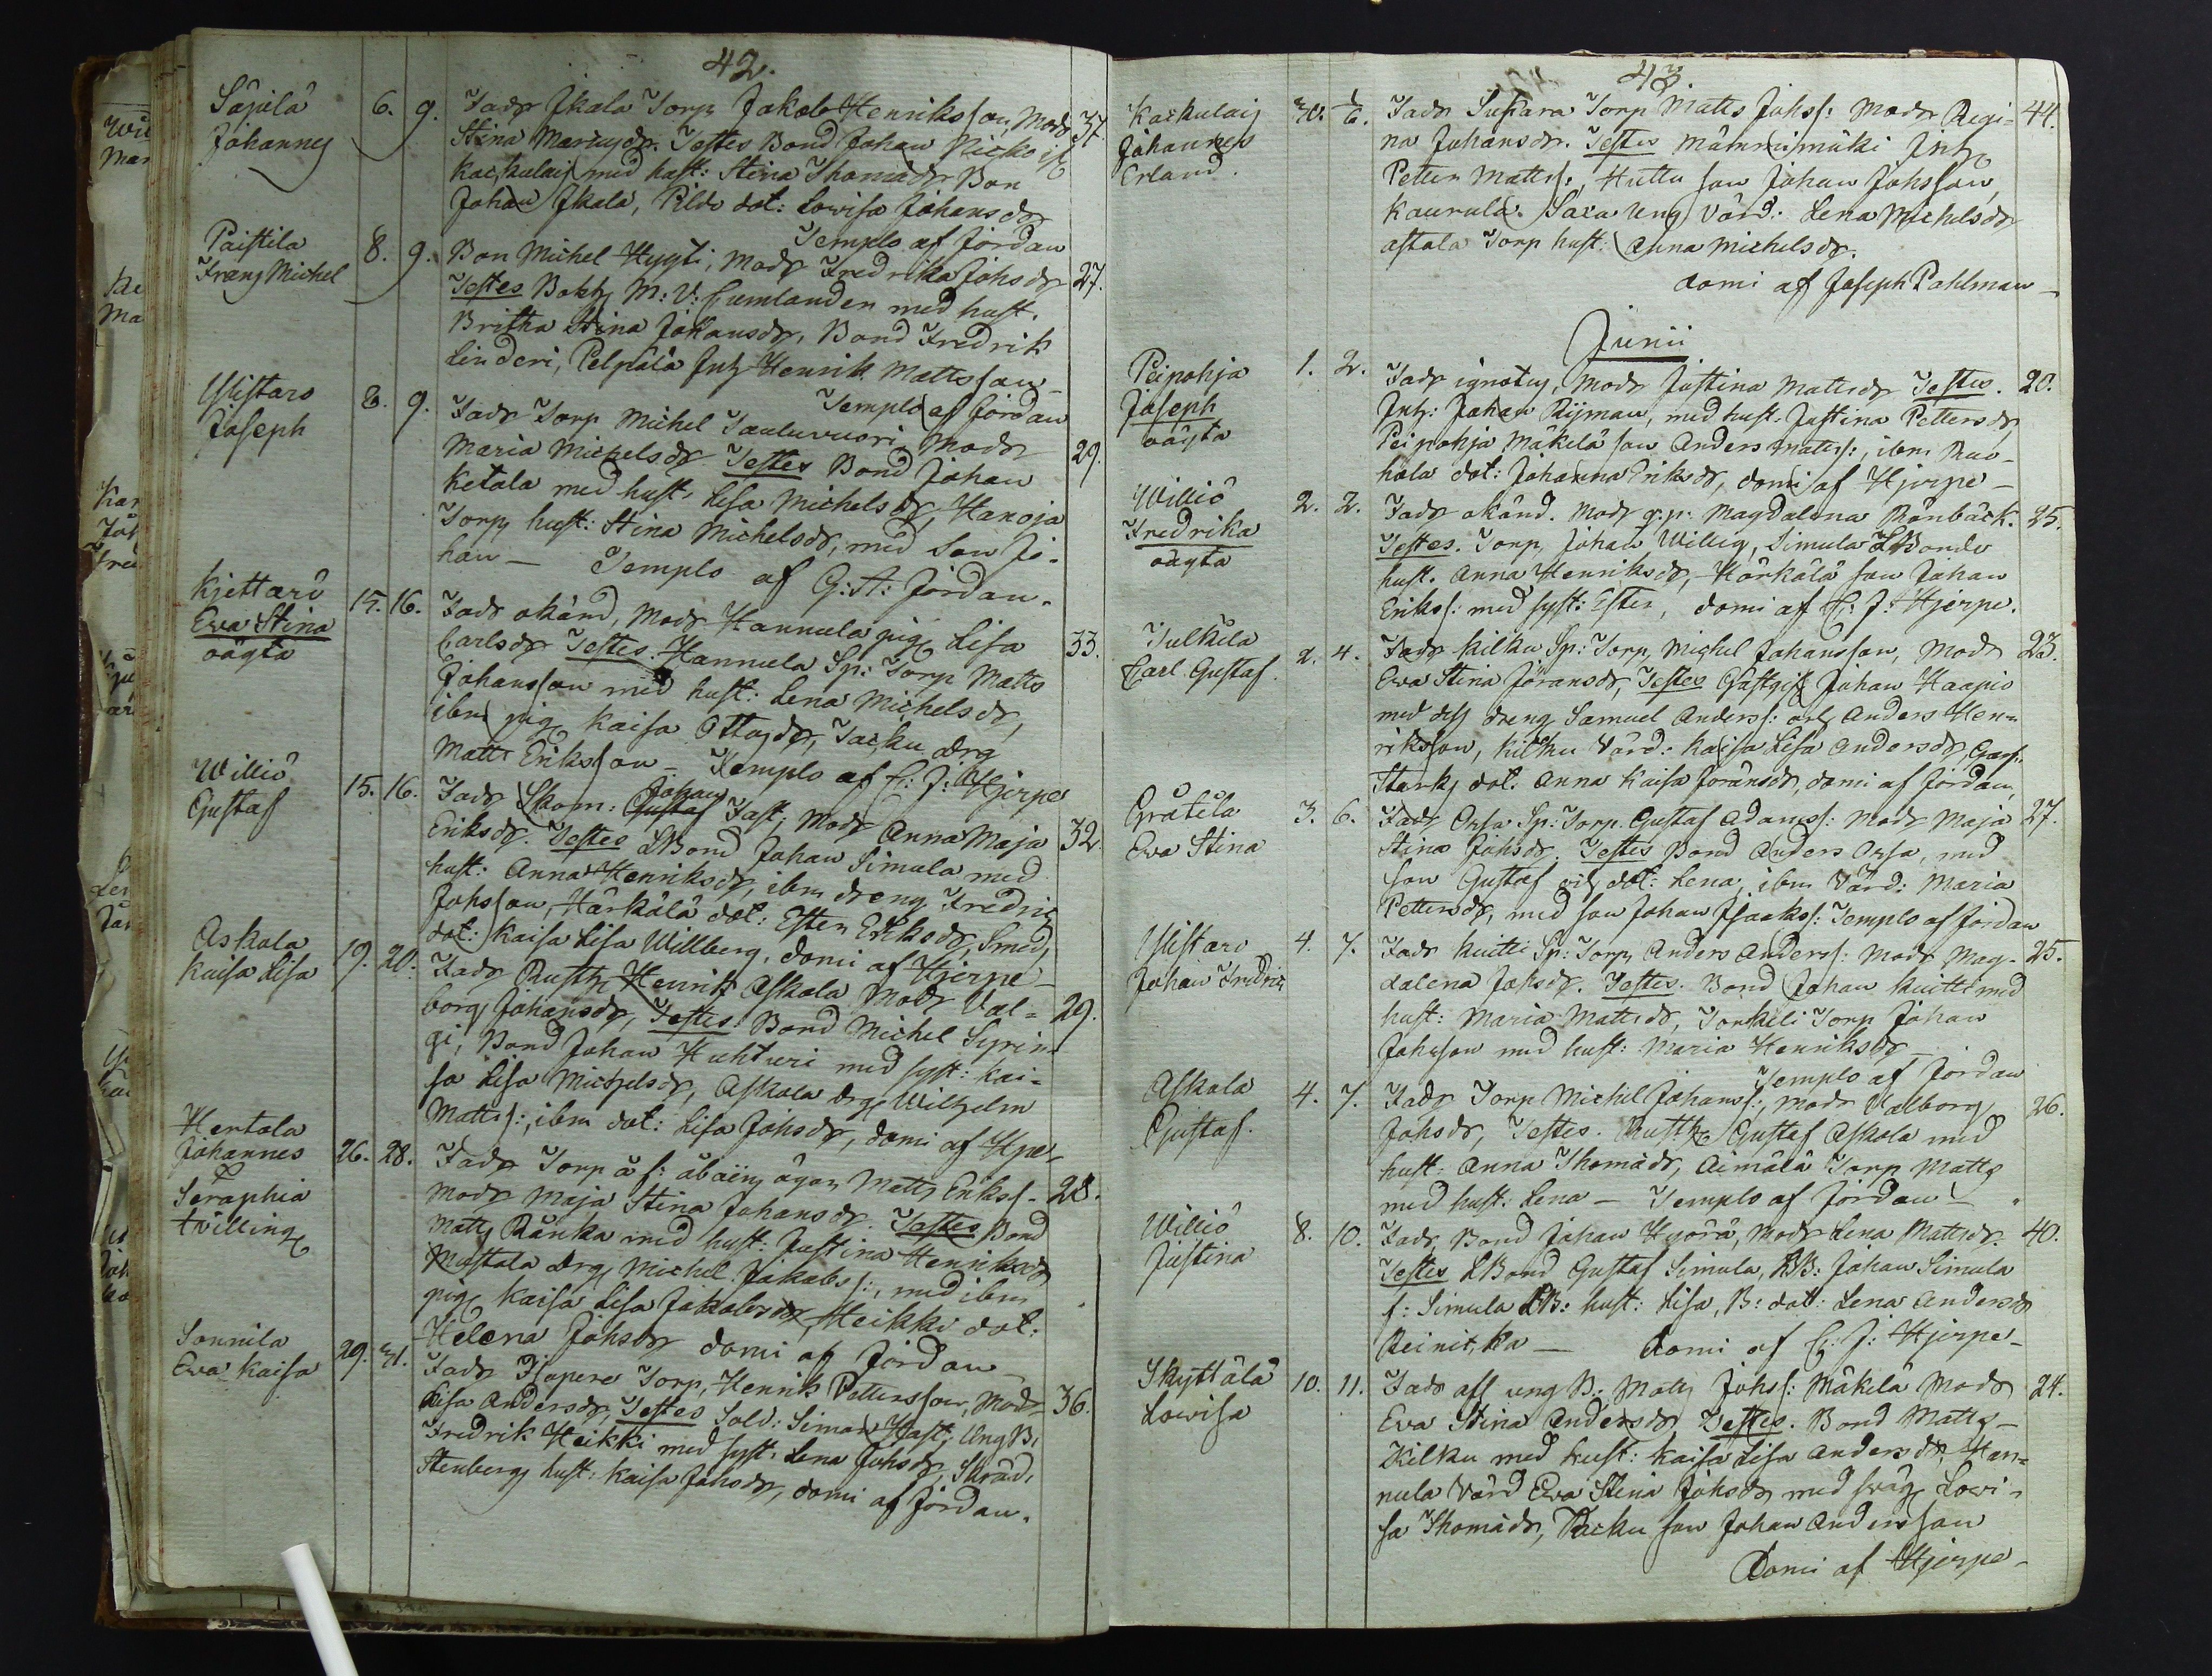 42.
Säpilä 6. 9. Fadr Jkala Torp Jakob Henriksson, Modr 37.
Johannes Stina Mariædr. Testes Bond Johan
Kackulais med hust: Stina Thomædr Bon
Johan Jkala, dot: Lowisa Johansdr
Templo af Jordan
Paistila 8. 9. Bon Michel Hygli, Modr Fredrika Johsdr 27.
Frans Michel Testes Bokh M: V: Cumlander med hust.
Britha Stina Johansdr, Bond Fredrik
Linderi, Pelpälä Inh Henrik Mattsson
Templo af Jordan
Ylistaro 8. 9. Fadr Torp Michel Tauluvuori Modr 29.
Joseph Maria Michelsdr Testes Bond Johan
Ketola med hust. Lisa Michelsdr, Hanoja
Torp hust: Stina Michelsdr, med Son Jo-
han — Templo af G: A: Jordan.
Kjettärö 15. 16. Fadr okänd, Modr Hannula pig Lisa 33.
Ewa Stina Carlsdr Testes. Hannula Sp: Torp Matts
oägta Johansson med hust: Lena Michelsdr,
ibm pig Kaisa Ottosdr, Tacku Drg
Matts Eriksson — Templo af C: J: Hjerpe
Williö 15. 16. Fadr Skom: Johan Fast, Modr Anna Maja 32.
Gustaf Eriksdr. Testes LBond Johan Simula med
hust: Anna Henriksdr, ibm dreng Fredric
Johsson, Härkälä dot: Ester Eriksdr, Smed
dot: Kaisa Lisa Willberg, domi af Hjerpe
Askala 19. 20. Fadr Rusth Henrik Askala Modr Val- 29.
Kaisa Lisa borg Johansdr, Testes: Bond Michel Syrin
gi, Bond Johan Huhturi med syst: Kai-
sa Lisa Michelsdr, Askala drg Wilhelm
Matts:, ibm dot: Lisa Johsdr, domi af Hpe
Hertala 26. 28. Fadr Torp å s: åboiens ägor Matts Erikss. 28.
Johannes Modr Maja Stina Johansdr. Testes Bond
& Matts Ränka med hust: Justina Henriksdr
Seraphia Mustala drg Michel Jakobss:, med ibm
twilling pig Kaisa Lisa Jakobsdr, Heikki dot:
Helena Johsdr domi af Jordan
Sonnila 29. 31. Fadr Torp, Henrik Pettersson, Modr 36.
Ewa Kaisa Lisa Andersdr, Testes Sold: Simon Hast, Ung B:
Fredrik Heikki med syst. Lena Johsdr, Skräd.
Stenbergs hust: Kaisa Johsdr, domi af Jordan.
43.
Kackulais 30. Fadr Torp Matts Johss: Modr Regi- 44.
Johannes na Johansdr. Testes Männismäki Inh
Erland. Petter Mattss:, Huttu son Johan Johsson,
Kaurula. Ung Värd: Lena Michelsdr
astala Torp hust: Anna Michelsdr.
domi af Joseph Pahlman
Junii
Peipohja 1. 2. Fadr ignotus, Modr Justina Mattsdr Testes. 20.
Joseph Inh: Johan Nyman, med hust. Justina Pettersdr
oägta Peipohja Mäkilä son Anders Mattss:, ibm Ruo-
hola dot: Johanna Eriksdr, domi af Hjerpe —
Williö 2. 2. Fadr okänd. Modr Magdalena Rönbäck. 25.
Fredrika Testes. Torp, Johan Willig, Simula LBonde
oägta hust. Anna Henriksdr, Härkälä son Johan
Erikss: med syst: Ester, domi af C: J: Hjerpe.
Tulkila 2. 4. Fadr Kilku Sp: Torp, Michel Johansson, Modr 23.
Carl Gustaf. Ewa Stina Joransdr, Testes Gästgif Johan Haapio
med dess dreng Samuel Anderss: och Anders Hen-
riksson, Kilku Värd: Kaisa Lisa Andersdr,
Starks dot. Anna Kaisa Joransdr, domi af Jordan,
Gråtila 3. 6. Fadr Orsa Sp: Torp. Gustaf Adamss: Modr Maja 27.
Eva Stina Stina Johsdr. Testes Bond Anders Orsa, med
son Gustaf och dot: Lena, ibm Värd: Maria
Pettersdr, med son Johan Jsaakss: Templo af Jordan
Ylistaro 4. 7. Fadr Kuitti Sp: Torp Anders Anderss: Modr Mag- 25.
Johan Fredric dalena Johsdr. Testes. Bond Johan Kuitti med
hust: Maria Mattsdr, Torkeli Torp Johan
Johsson med hust: Maria Henriksdr
Templo af Jordan
Askala 4. 7. Fadr Torp Michel Johanss:, Modr Valborg 26.
Gustaf. Johsdr, Testes. Rusth Gustaf Askola med
hust: Anna Thomædr, Aimälä Torp Matts
med hust: Lena — Templo af Jordan
Williö 8. 10. Fadr Bond Johan Hyörä, Modr Lena Mattsdr. 40.
Justina Testes LBond Gustaf Simula, LB: Johan Simula
s: Simula LB: hust: Lisa, B: dot: Lena Andersdr
Reinitka — Domi af C: J: Hjerpe —
Skyttälä 10. 11. Fadr afl ung B: Matts Johss: Mäkilä Modr 24.
Lowisa Eva Stina Andersdr Testes. Bond Matts
Kilku med hust: Kaisa Lisa Andersdr, Han-
nula Värd Ewa Stina Johsdr med swäg Lowi-
sa Thomædr, Tacku son Johan Andersson
Domi af Hjerpe —